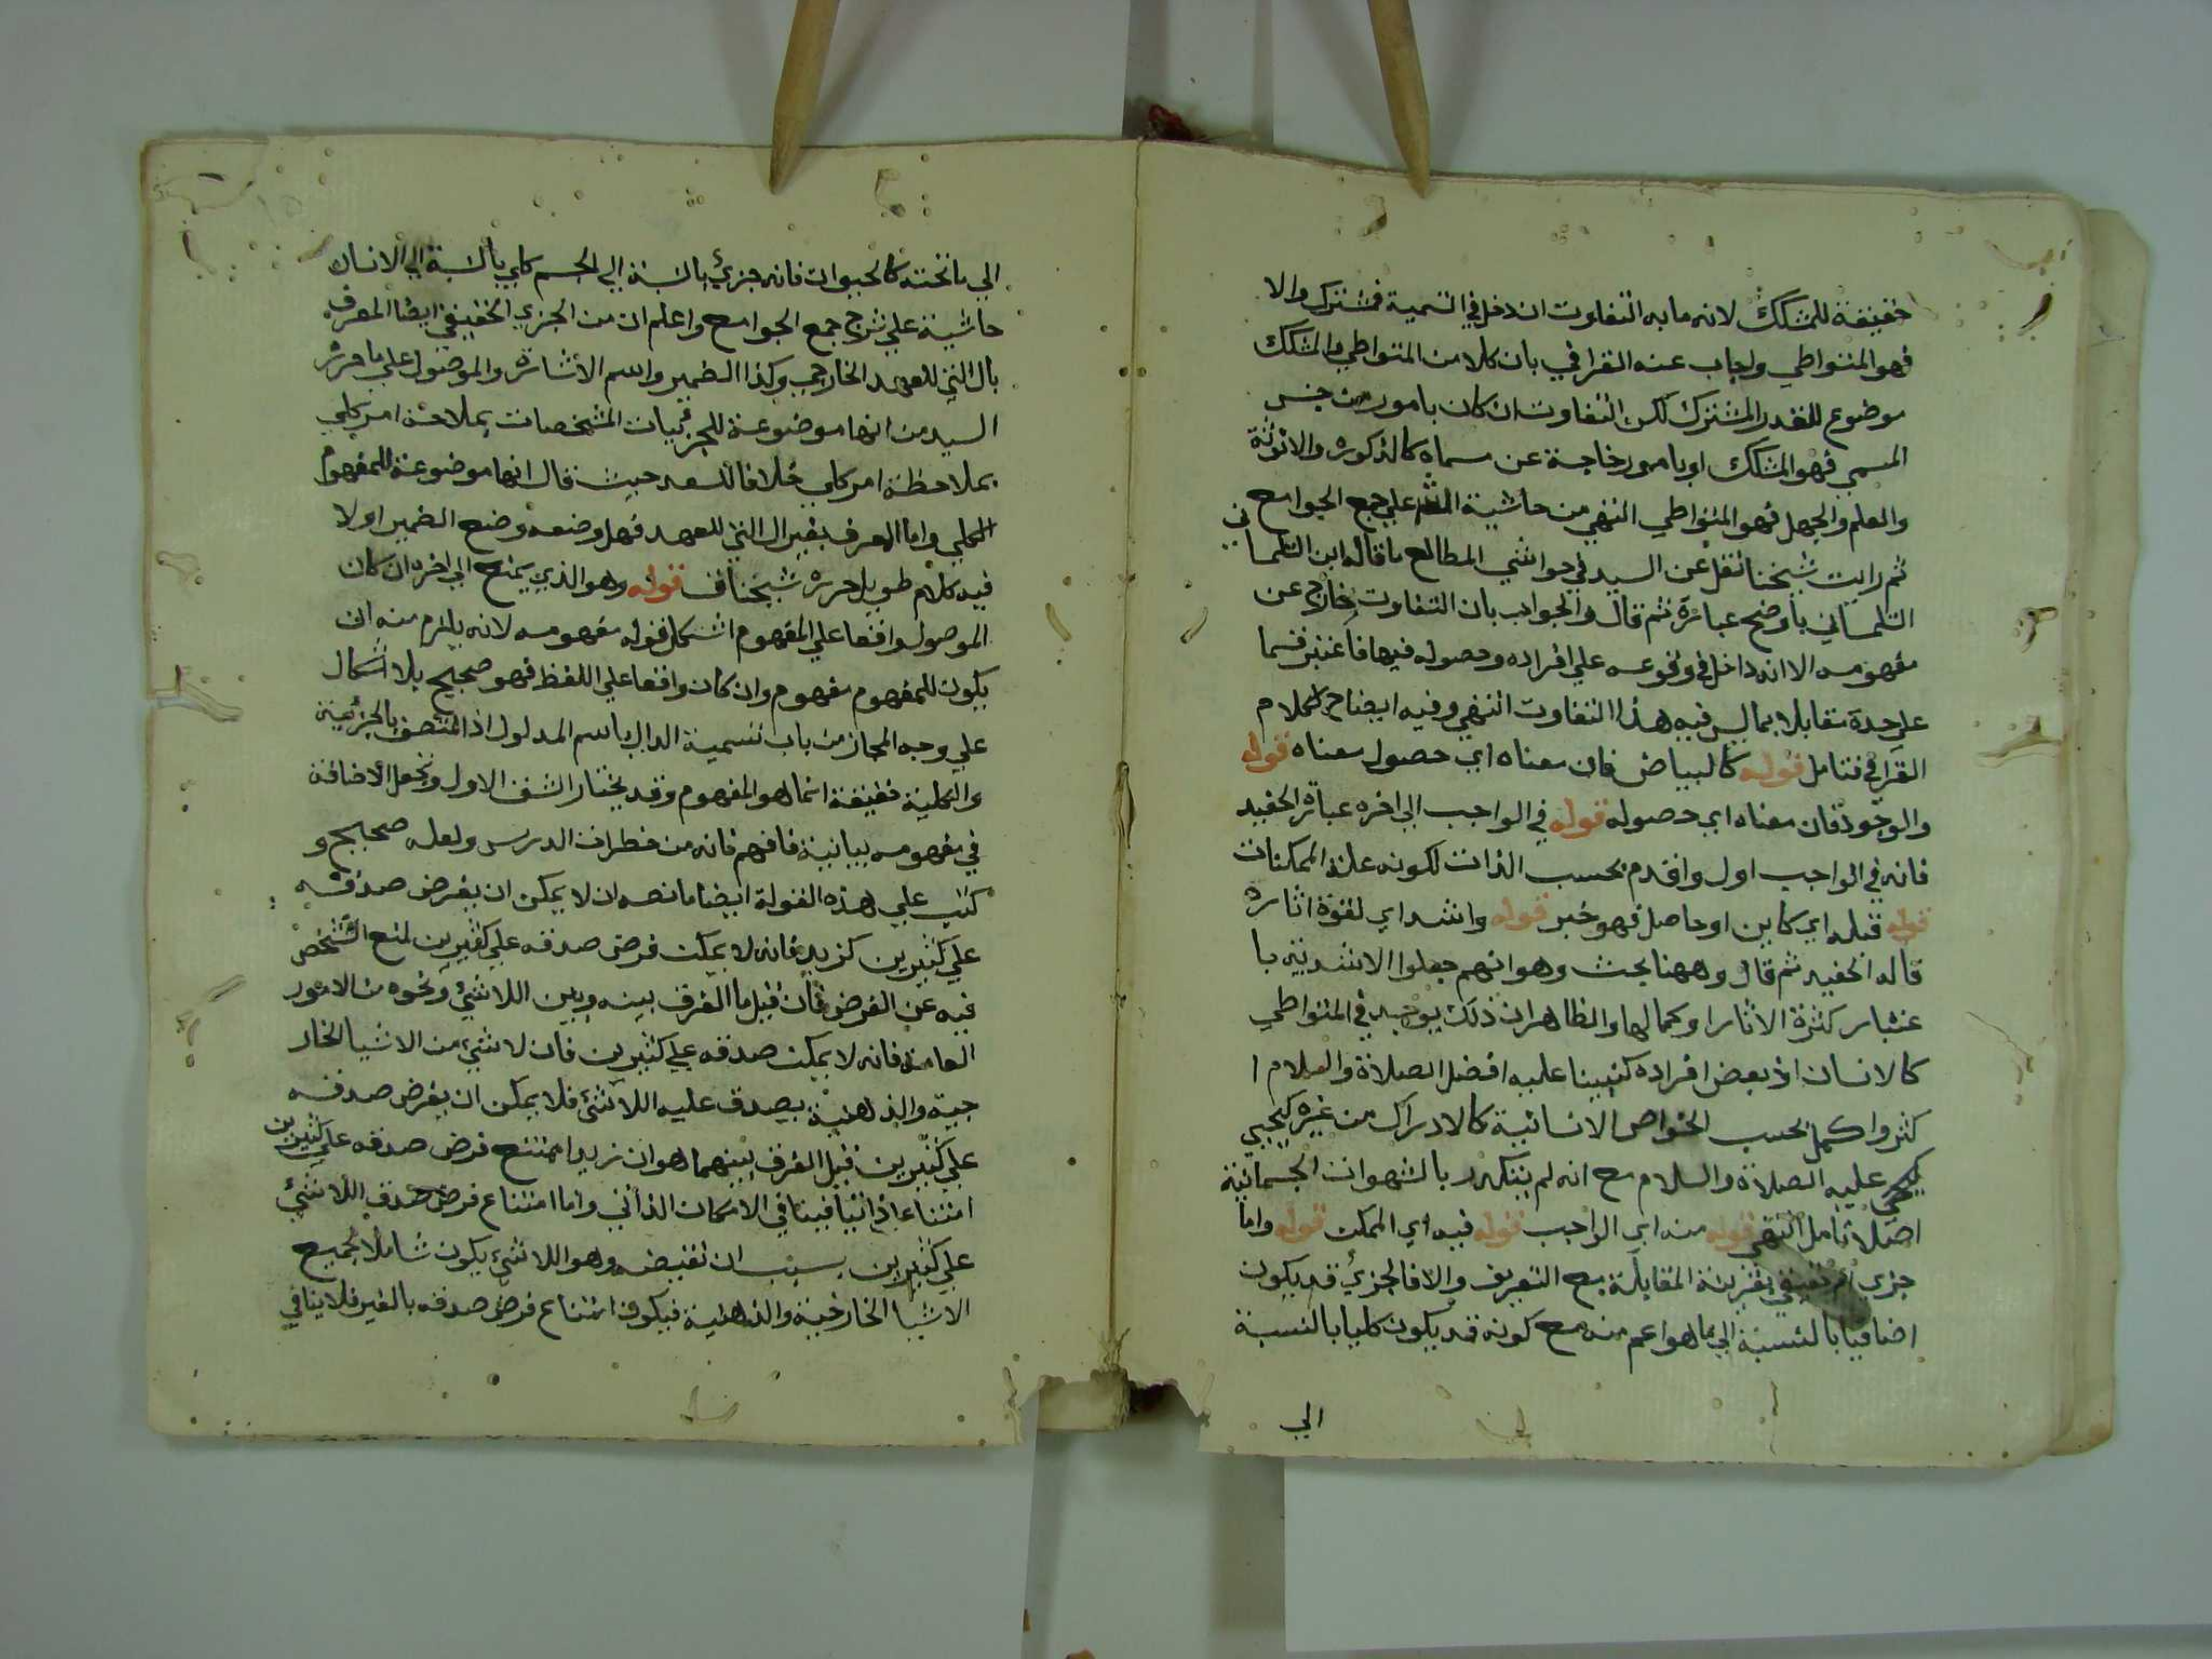 حقيقة للمشكك لانه ما به التفاوت ان دخل في التسمية فمشترك والا
فهو المتواطي واجاب عنه القرافي بان كلا من المتواطي والمشكك
موضوع للقدر المشترك لكن التفاوت ان كان بامور من جنس
المسمي فهو المشكك او بامور خارجة عن مسماه كالذكوره والانوثة
والعلم والجهل فهو المتواطي انتهي من حاشية علي جمع الجوامع
ثم رايت شيخنا نقل عن السيد في حواشي المطالع ما قاله ابن التلمسا ني
التلمساني باوضح عبارة ثم قال والجواب بان التفاوت خارج عن
مفهومه الا انه داخل في وقوعه علي افراده وحصوله فيها فاعتبر قسما
علي حدة مقابلا بما ليس فيه هذا التفاوت انتهي وفيه ايضاح لكلام
القرافي فتامل قوله كالبياض فان معناه اي حصول معناه قوله
والوجود فان معناه اي حصوله قوله في الواجب الي اخره عبارة الحفيد
فانه في الواجب اول واقدم بحسب الذات لكونه علة الممكنات
قوله قبله اي كاين او حاصل فهو خبر قوله واشد اي لقوة اثاره
قاله الحفيد ثم قال وههنا بحث وهو انهم جعلوا الاشدية با
عتبار كثرة الاثار او كمالها والظاهر ان ذلك يوجد في المتواطي
كالانسان اذ بعض افراده كنبينا عليه افضل الصلاة والسلام ا
كثر واكمل بحسب الخواص الانسانية كالادراك من غيره كيحيي
عليه الصلاة والسلام مع انه لم يتكدر بالشهوات الجسمانية
اصلا تامل انتهي قوله منه اي الواجب قوله فيه اي الممكن قوله واما
جزي اي حقيقي بقرينة المقابلة مع التعريف والا فالجزئ قد يكون
اضافيا بالنسبة الي ما هو اعم منه مع كونه قد يكون كليا بالنسبة
الي
الي ما تحته كالحيوان فانه جزئ بالنسبة الي الجسم كلي بالنسبة الي الانسان
حاشية علي شرح جمع الجوامع واعلم ان من الجزي الحقيقي ايضا المعرف
بال التي للعهد الخارجي وكذا الضمير واسم الاشارة والموصول علي ما حرره
السيد من انها موضوعة للجزئيات المشخصات بملاحظة امر كلي
بملاحظة امر كلي خلافا للسعد حيث قال انها موضوعة للمفهوم
الكلي واما المعرف بغير ال التي للعهد فهل وضعه وضع الضمير اولا
فيه كلام طويل حرره شيخنا قوله وهو الذي يمنع الي اخره ان كان
الموصول واقعا علي المفهوم اشكل قوله مفهومه لانه يلزم منه ان
يكون للمفهوم مفهوم وان كان واقعا علي اللفظ فهو صحيح بلا اشكال
علي وجه المجاز من باب تسمية الدال باسم المدلول اذ المتصف بالجزئية
والكلية حقيقة انما هو المفهوم وقد يختار الشق الاول وتجعل الاضافة
في مفهومه بيانية فافهم فانه من خطرات الدرس ولعله صحيح و
كتب علي هذه القولة ايضا ما نصه ان لا يمكن ان يفرض صدقه
علي كثيرين كزيد فانه لا يمكن فرض صدقه علي كثيرين لمنع التشخص
فيه عن الفرض فان قيل ما الفرق بينه وبين اللاشئ ونحوه من الامور
العامة فانه لا يمكن صدقه علي كثيرين فان لا شئ من الاشيا الخار
جية والذهنية يصدق عليه اللاشئ فلا يمكن ان يفرض صدقه
علي كثيرين قيل الفرق بينهما هو ان زيدا ممتنع فرض صدقه علي كثيرين
امتناعا ذاتيا فينافي الامكان الذاتي واما امتناع فرض صدق اللاشئ
علي كثيرين بسبب ان نقيضه وهو اللاشئ يكون شاملا لجميع
الاشيا الخارجية والذهنية فيكون امتناع فرض صدقه بالغير فلا ينافي